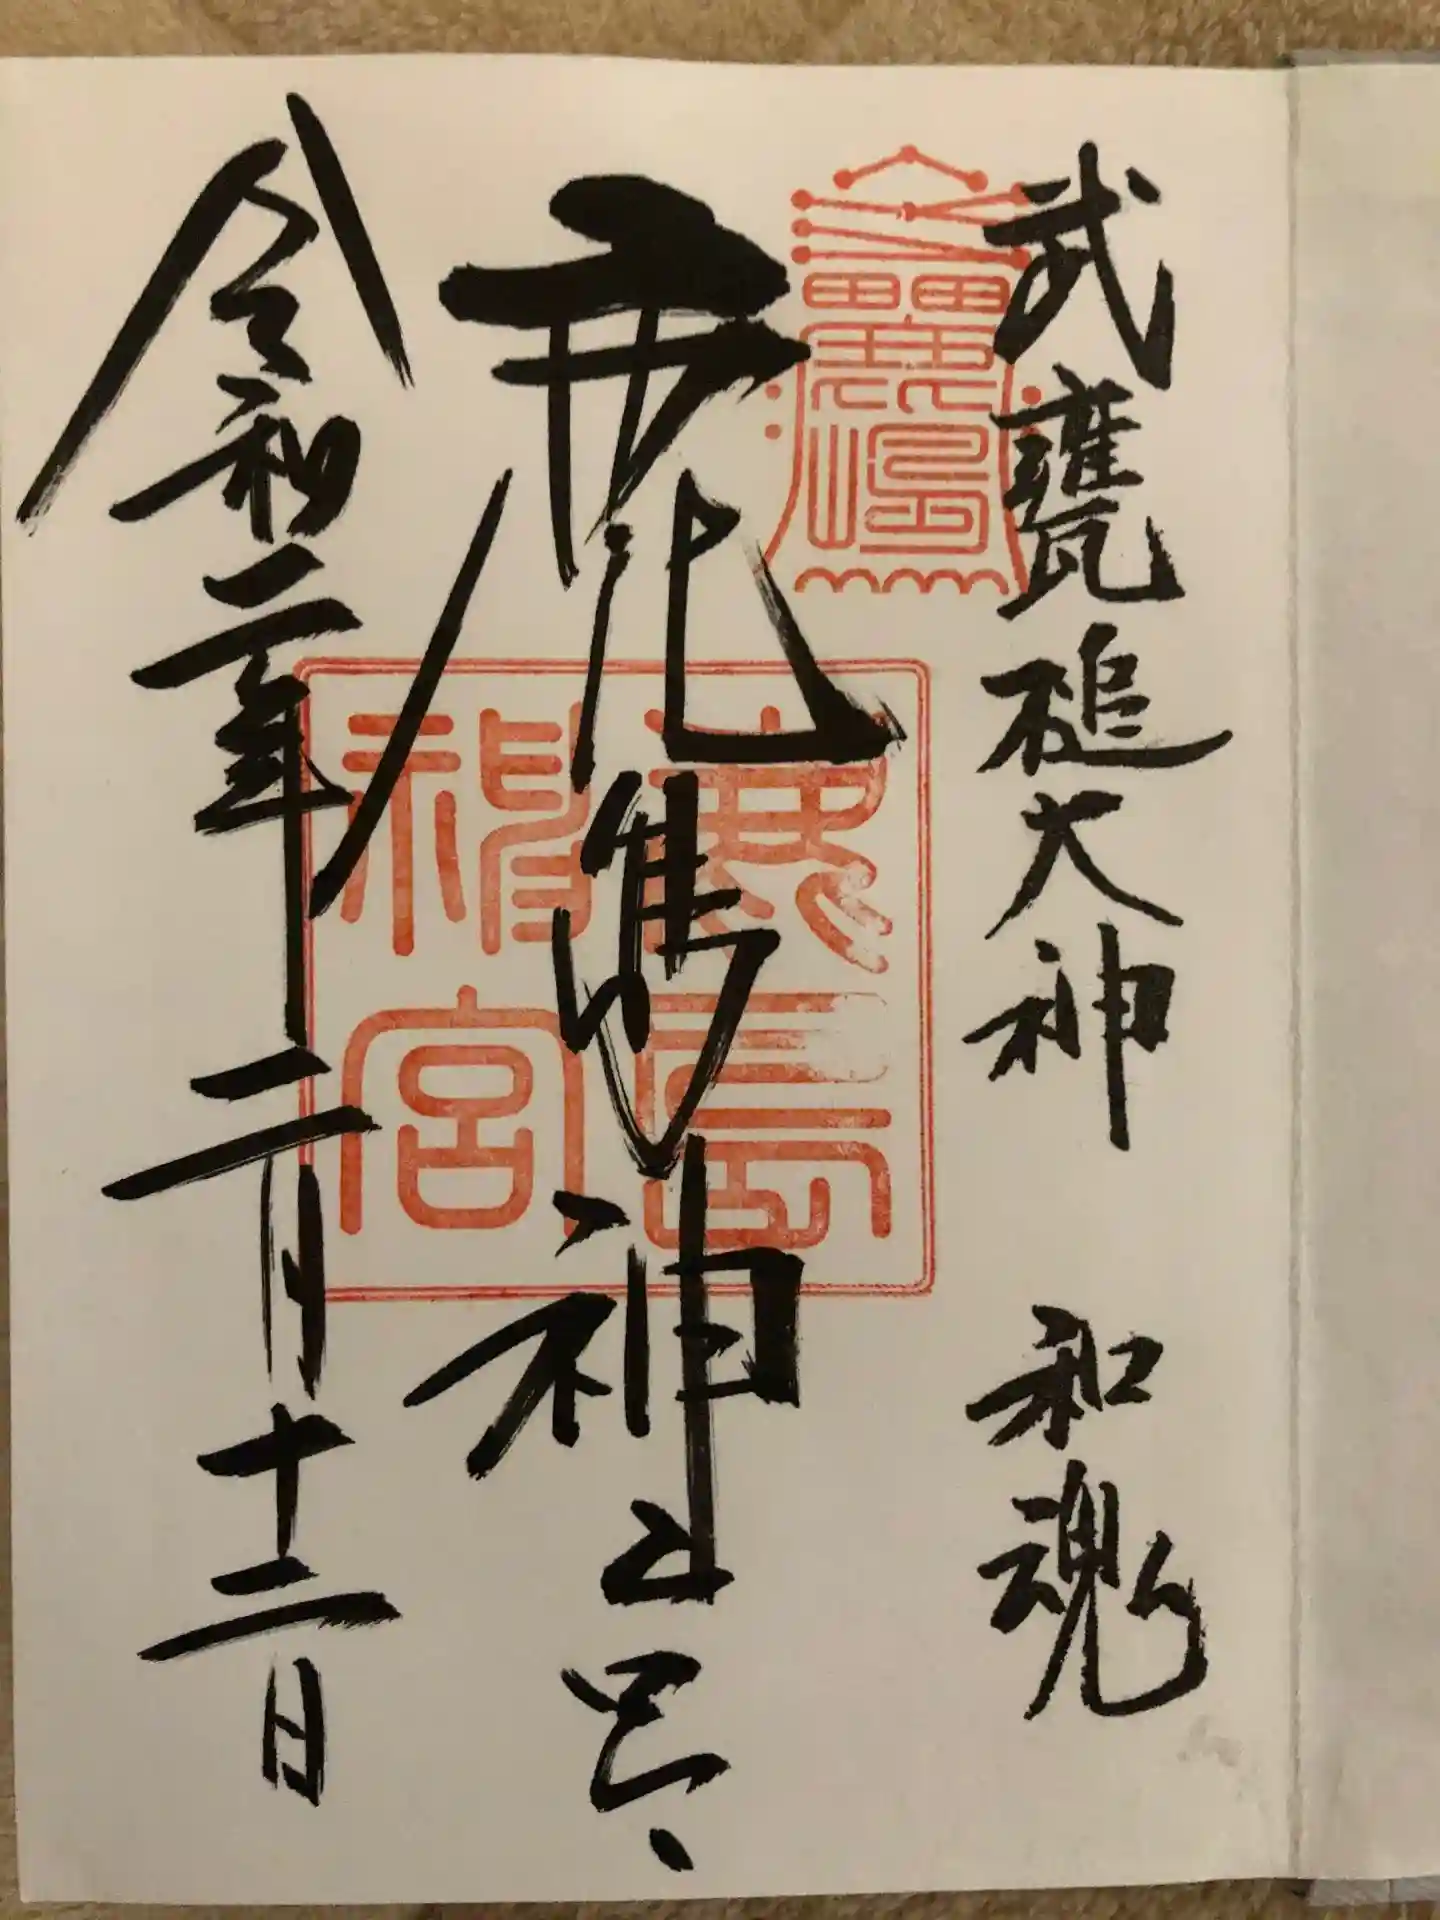 武甕槌大神 和魂
鹿嶋神宮
令和二年二月十二日
鹿嶋
鹿島
神宮